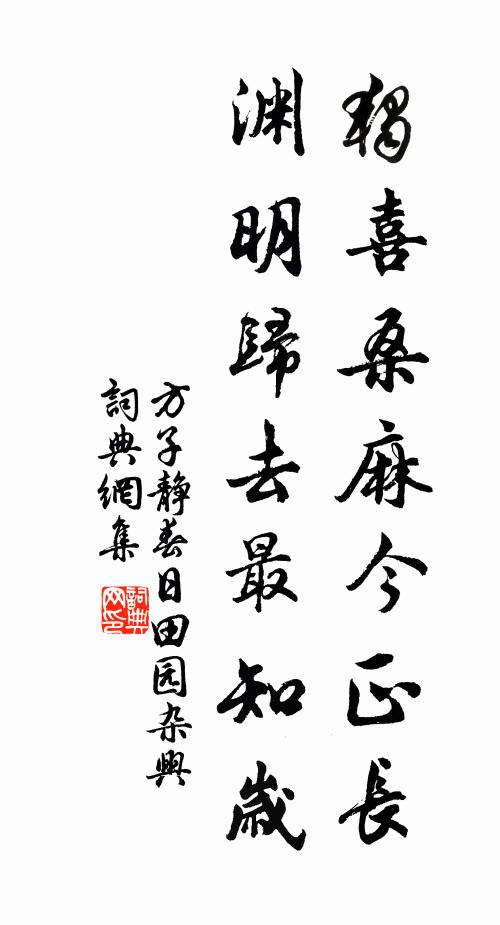 獨喜桑麻今正長
渊明歸去最知歲
方子静春日田园杂興
詞典網集
詞典网印